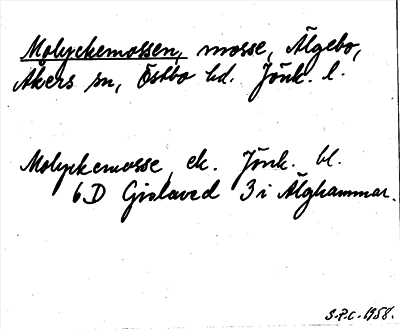 Molyckemossen, mosse, Älgebo,
Åkers sn, Östbo hd. Jönk. l.
Molyckemosse, ek. Jönk. bl.
6D Gislaved 3 i Älghammar.
S.P.C. 1958.